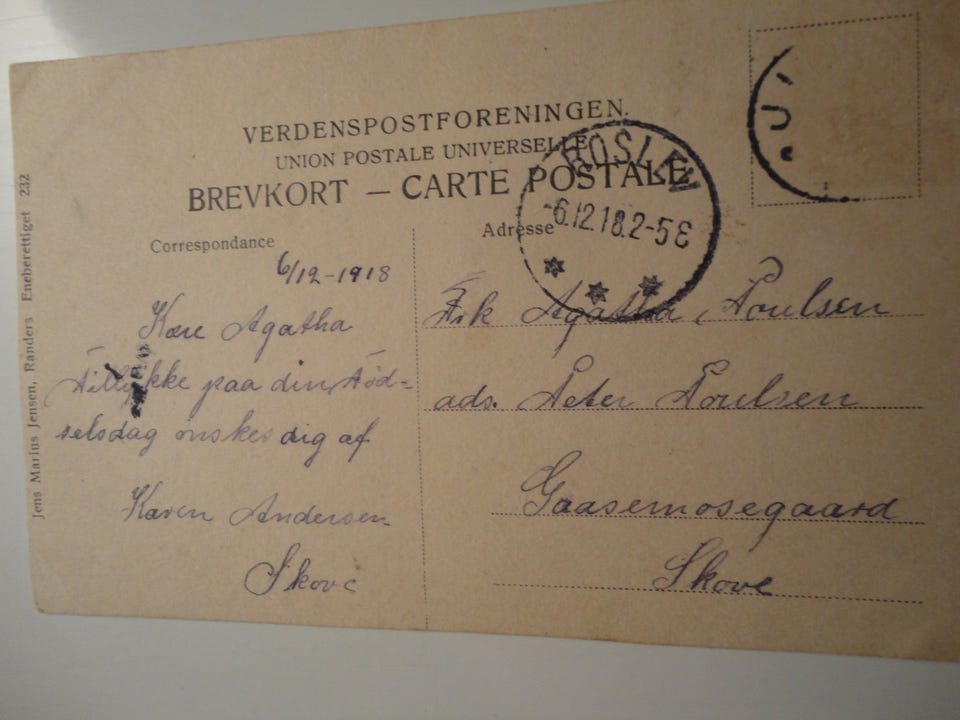 VERDENSPOSTFORENINGEN.
UNION POSTALE UNIVERSELLE
BREVKORT — CARTE POSTALE
ROSLEV
-6.12.18.2-5 E
Correspondance
6/12-1918
Kære Agatha
Tillykke paa din Fød-
selsdag ønskes dig af
Karen Andersen
Skove
Adresse
Frk Agatha Poulsen
ads. Peter Poulsen
Gaasemosegaard
Skove
Jens Marius Jensen, Randers Eneberettiget 232